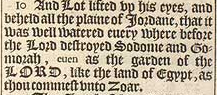 10 And Lot lifted vp his eyes, and
beheld all the plaine of Iordane, that it
was well watered euery where before
the Lord destroyed Sodome and Go-
morah, euen as the garden of the
LORD, like the land of Egypt, as
thou commest vnto Zoar.